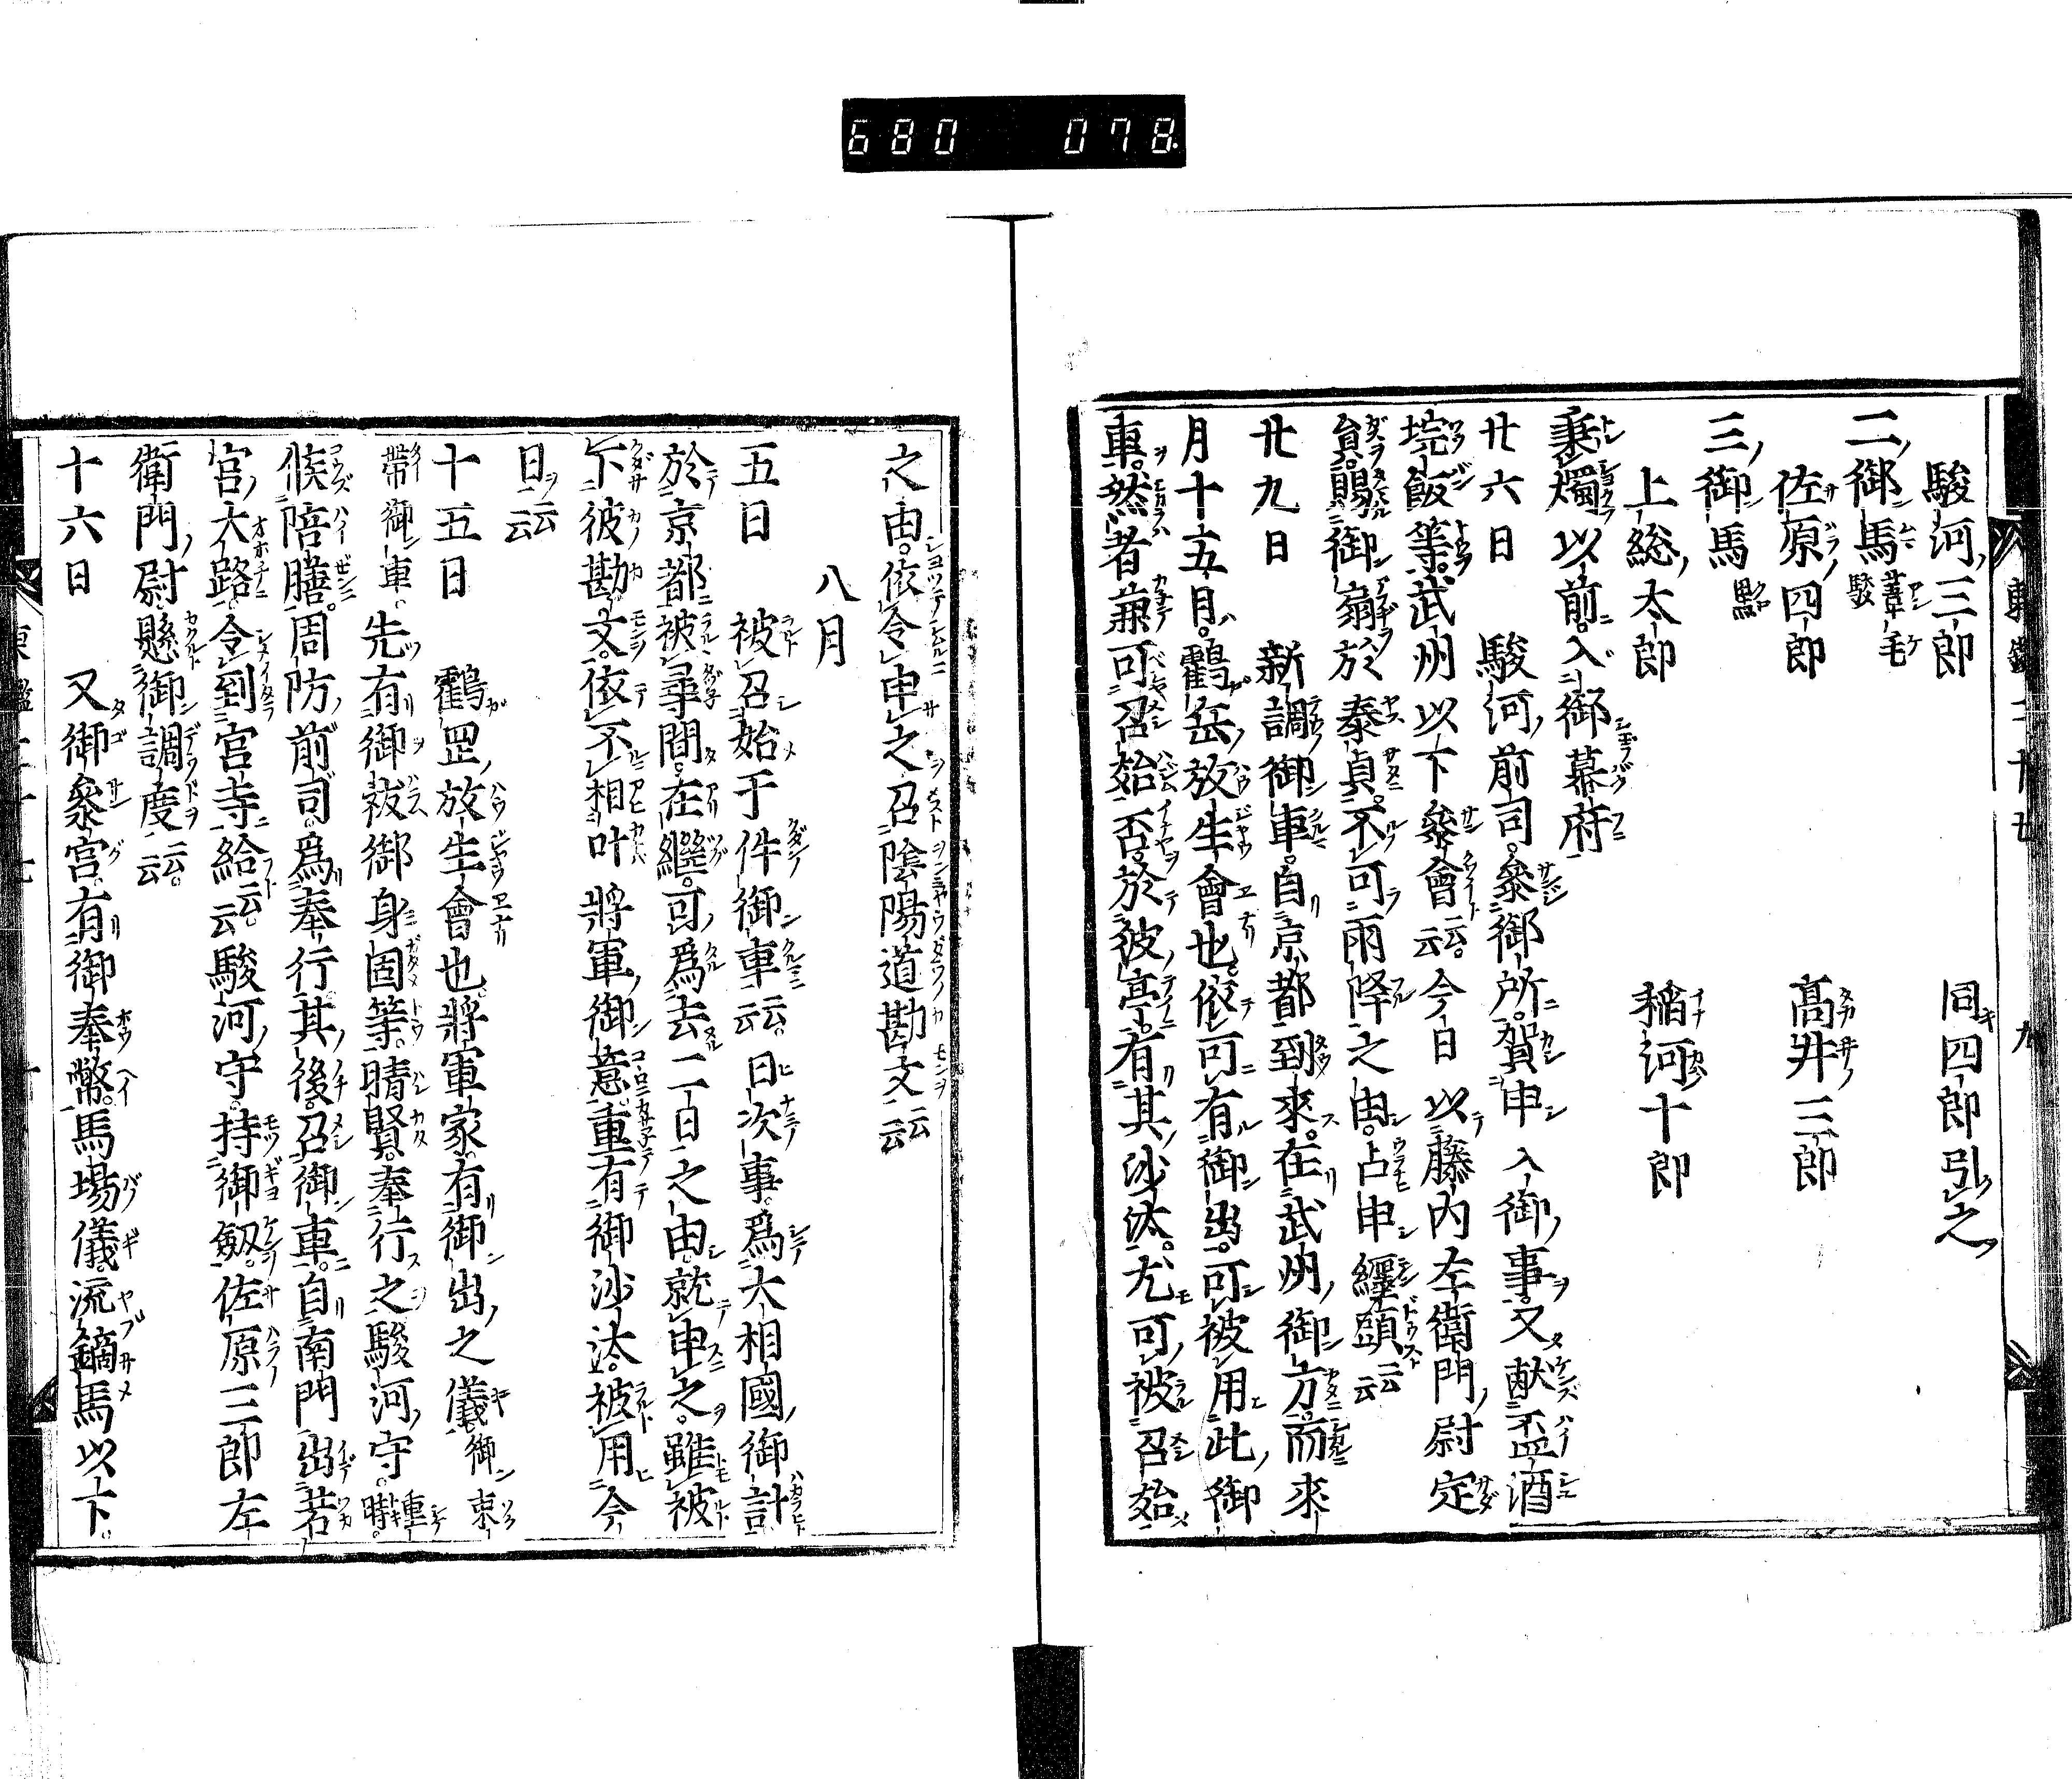 680 078
駿河三郎 同四郎引之
二御馬 葦毛駮
佐原四郎 髙井三郎
三御馬 黒
上総太郎 稲河十郎
秉燭以前入御幕府
廿六日 駿河前司參御所賀申入御事又献盃酒
垸飯等武州以下參會云云今日以藤内左衛門尉定
員賜御扇於泰貞不可雨降之由占申纒頭云云
廿九日 新調御車自京都到來在武州御方而來
月十五月鶴岳放生會也依可有御出可被用此御
車然者兼可召始否於彼亭有其沙汰尤可被召始
之由依令申之召陰陽道勘文云云
八月
五日 被召始于件御車云云日次事爲大相國御計
於京都被尋問在繼可爲去二日之由就申之雖被
下彼勘文依不相叶將軍御意重有御沙汰被用今
日云云
十五日 鶴罡放生會也將軍家有御出之儀御束
帶御車先有御祓御身固等晴賢奉行之駿河守重時
候陪膳周防前司爲奉行其後召御車自南門出若
宮大路令到宮寺給云云駿河守持御劔佐原三郎左
衛門尉懸御調度云云
十六日 又御參宮有御奉幣馬場儀流鏑馬以下